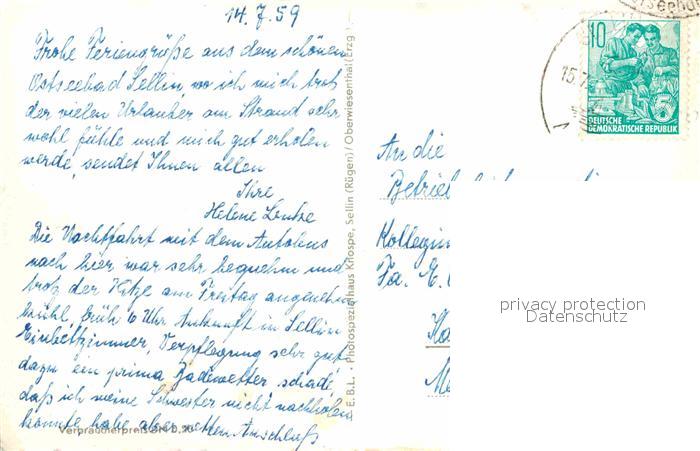 14.7.59
Frohe Feriengrüße aus dem schönen
Ostseebad Sellin, wo ich mich trotz
der vielen Urlauber am Strand sehr
wohl fühle und mich gut erholen
werde, sendet Ihnen allen
Ihre
Helene
Die Nachtfahrt mit dem Autobus
nach hier war sehr bequem und
trotz der Hitze am Freitag angenehm
kühl, früh 6 Uhr Ankunft in Sellin
Einbettzimmer, Verpflegung sehr gut
dazu ein prima Badewetter, schade
daß ich meine Schwester nicht nachholen
konnte, habe aber netten Anschluß
Verbraucherpreis
E.B.L. • Photospezialhaus Knospe, Sellin (Rügen) / Oberwiesenthal (Erzg.)
10
5
DEUTSCHE
DEMOKRATISCHE REPUBLIK
15.7
An die
Betrieb
Kollegin
Fa. E.
privacy protection
Datenschutz